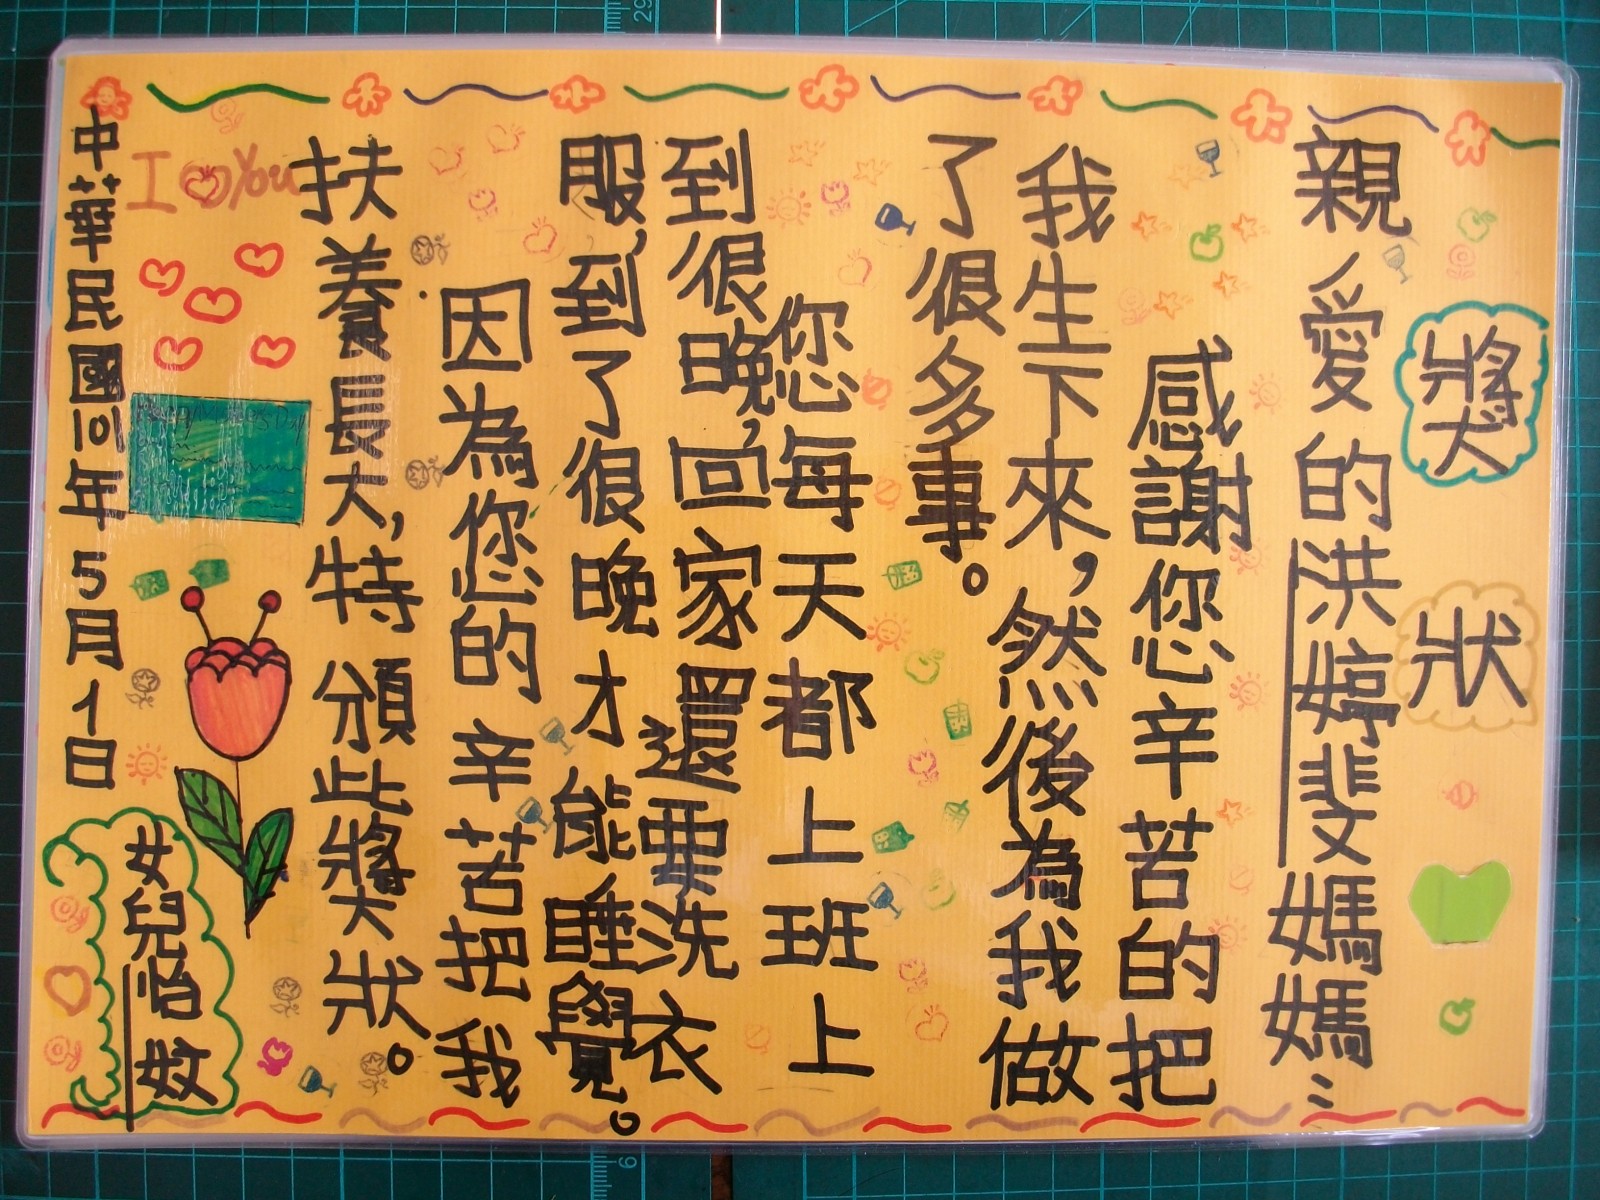 獎狀
親愛的洪婷斐媽媽:
感謝您辛苦的把
我生下來,然後為我做
了很多事。
您每天都上班上
到很晚,回家還要洗衣
服,到了很晚才能睡覺。
因為您的辛苦把我
扶養長大,特頒此獎狀。
I You
女兒怡妏
中華民國101年5月1日